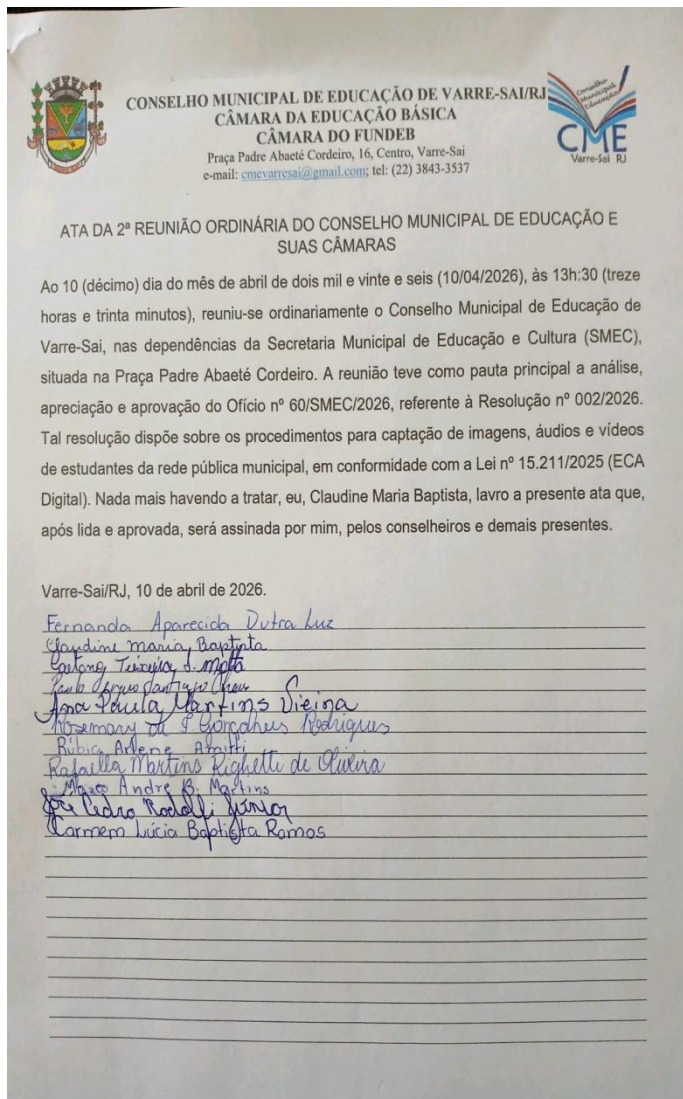 CONSELHO MUNICIPAL DE EDUCAÇÃO DE VARRE-SAI/RJ
CÂMARA DA EDUCAÇÃO BÁSICA
CÂMARA DO FUNDEB
Praça Padre Abaeté Cordeiro, 16, Centro, Varre-Sai
e-mail: cmevarresai@gmail.com; tel: (22) 3843-3537
Conselho
Municipal
Educação
CME
Varre-Sai RJ
ATA DA 2ª REUNIÃO ORDINÁRIA DO CONSELHO MUNICIPAL DE EDUCAÇÃO E
SUAS CÂMARAS
Ao 10 (décimo) dia do mês de abril de dois mil e vinte e seis (10/04/2026), às 13h:30 (treze
horas e trinta minutos), reuniu-se ordinariamente o Conselho Municipal de Educação de
Varre-Sai, nas dependências da Secretaria Municipal de Educação e Cultura (SMEC),
situada na Praça Padre Abaeté Cordeiro. A reunião teve como pauta principal a análise,
apreciação e aprovação do Ofício nº 60/SMEC/2026, referente à Resolução nº 002/2026.
Tal resolução dispõe sobre os procedimentos para captação de imagens, áudios e vídeos
de estudantes da rede pública municipal, em conformidade com a Lei nº 15.211/2025 (ECA
Digital). Nada mais havendo a tratar, eu, Claudine Maria Baptista, lavro a presente ata que,
após lida e aprovada, será assinada por mim, pelos conselheiros e demais presentes.
Varre-Sai/RJ, 10 de abril de 2026.
Fernanda Aparecida Dutra Luz
Claudine Maria Baptista
Teixeira S. Motta
Ana Paula Martins Vieira
Rosemary de Gonçalves Rodrigues
Rúbia Arlene
Rafaella Martins Righetti de Oliveira
Marco Andre B. Martins
José Pedro Rodolfi Júnior
Carmem Lúcia Baptista Ramos